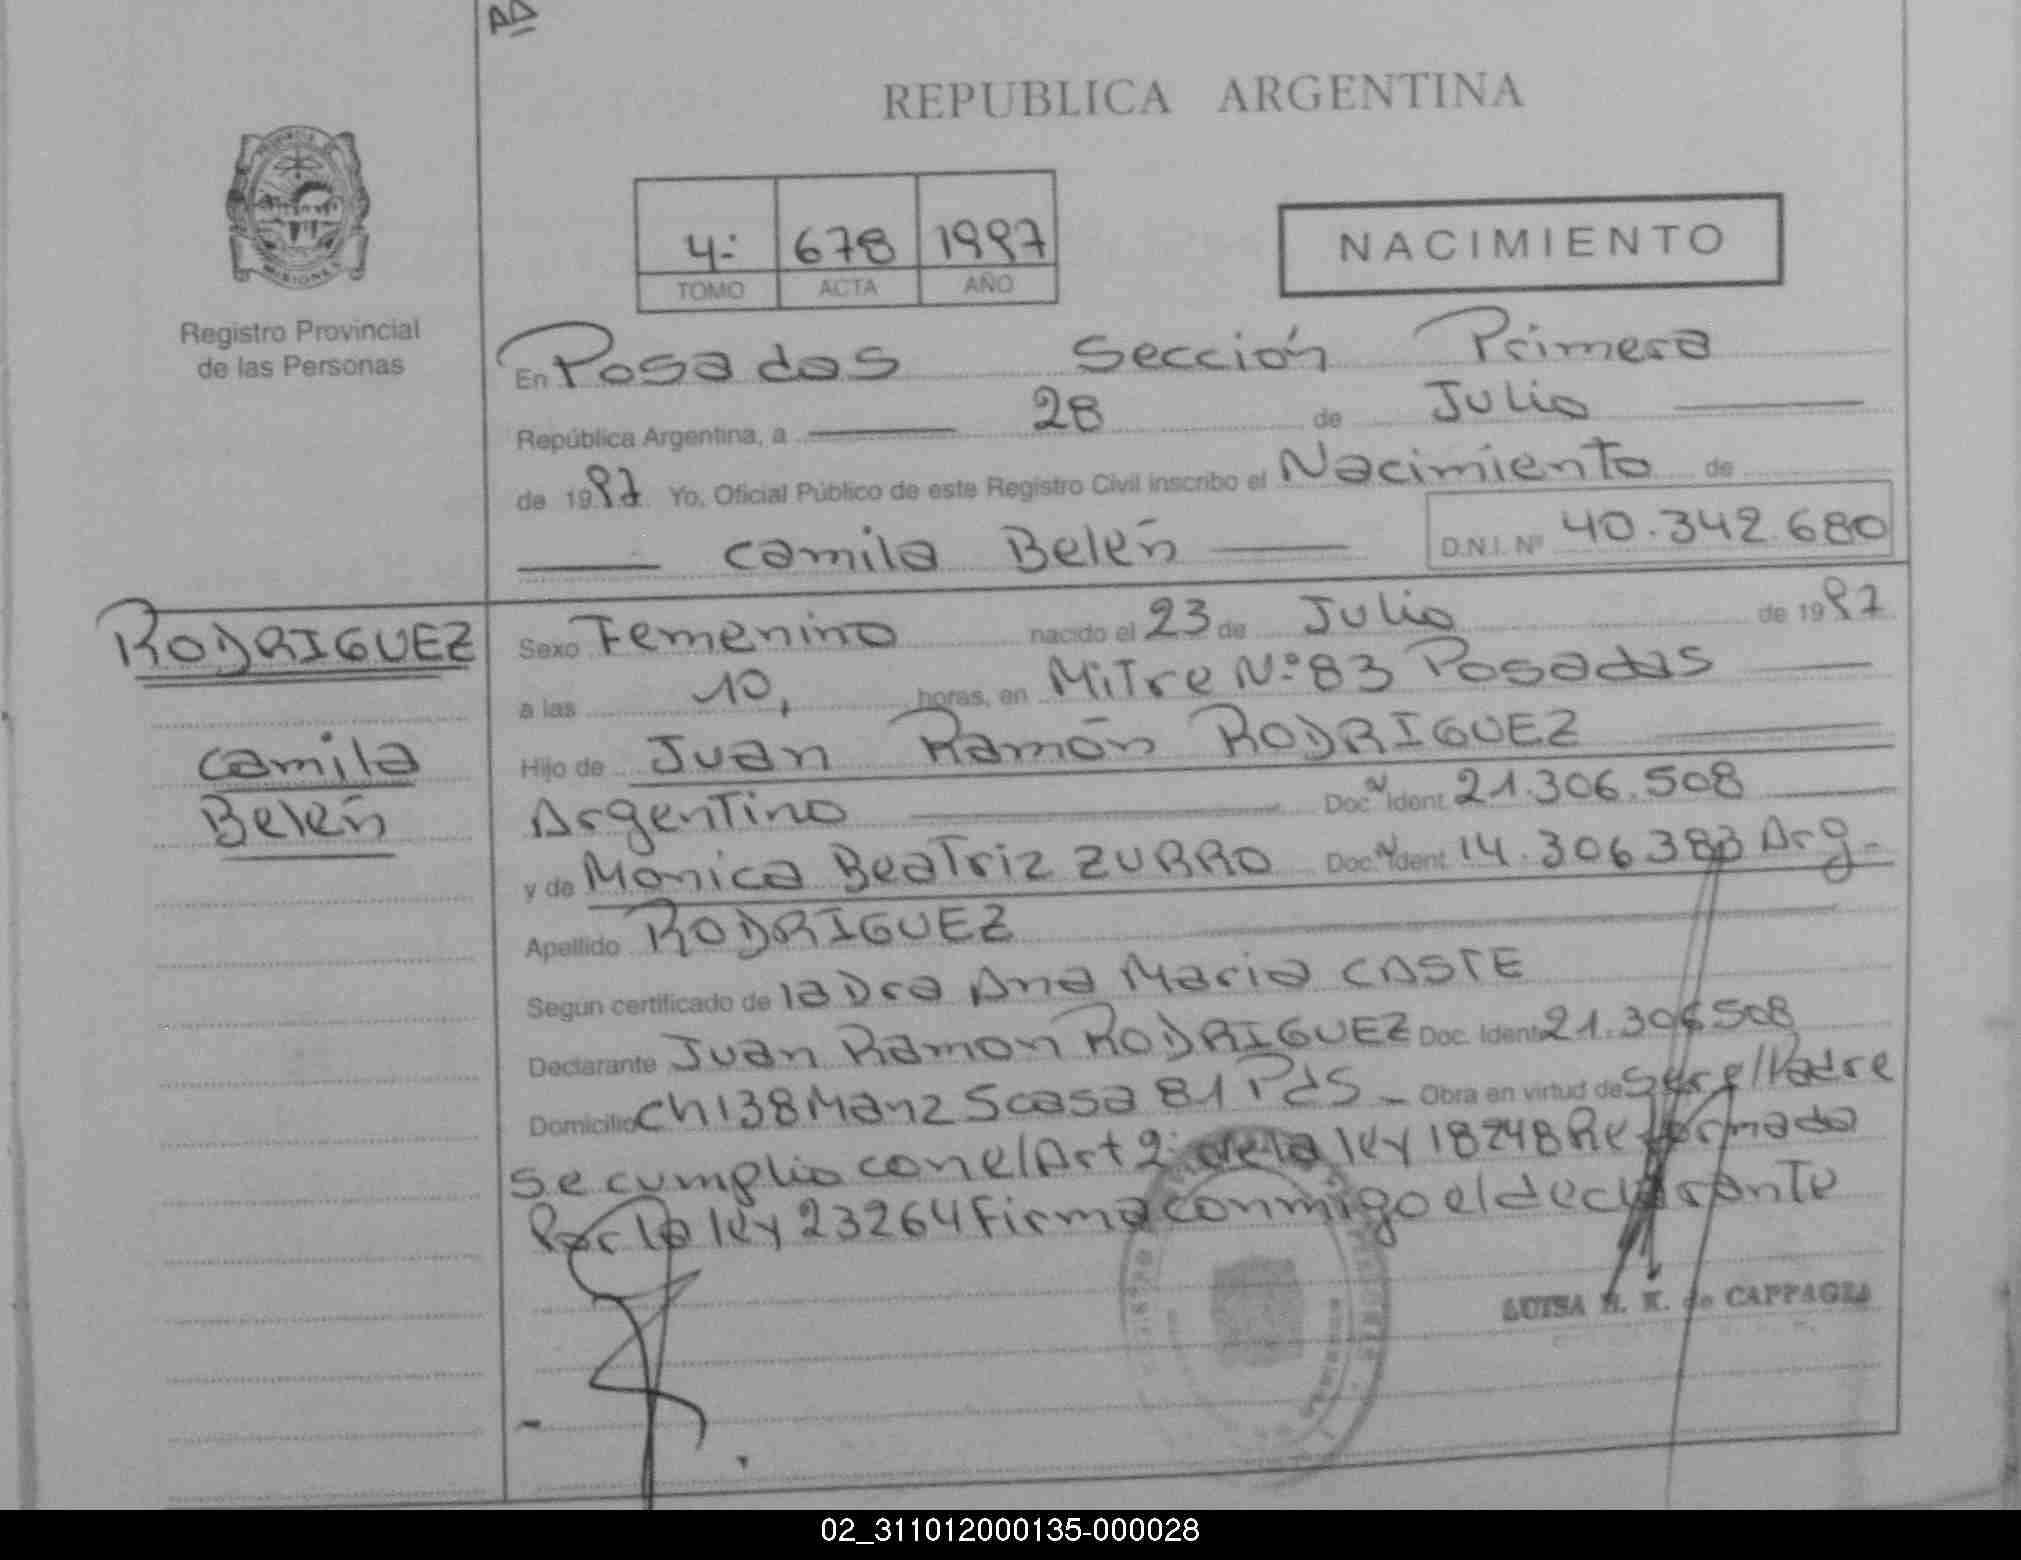 AD
REPUBLICA ARGENTINA
PROVINCIA DE MISIONES
Registro Provincial
de las Personas
4: 678 1997
TOMO ACTA AÑO
NACIMIENTO
En Posadas Sección Primera
República Argentina, a 28 de Julio
de 1997 Yo, Oficial Público de este Registro Civil inscribo el Nacimiento de
Camila Belén D.N.I. Nº 40.342.680
RODRIGUEZ
Camila
Belén
Sexo Femenino nacido el 23 de Julio de 1997
a las 10, horas, en Mitre Nº 83 Posadas
Hijo de Juan Ramón RODRIGUEZ
Argentino Doc. Ident 21.306.508
y de Monica Beatriz ZURRO Doc. Ident 14.306.383 Arg.
Apellido RODRIGUEZ
Según certificado de la Dra Ana Maria CASTE
Declarante Juan Ramon RODRIGUEZ Doc. Ident 21.306508
Domicilio Ch138 Manz 5 casa 81 Pds - Obra en virtud de ser el Padre
se cumplio con el Art 2: de la ley 18248 Reformada
Por la ley 23264 Firma conmigo el declarante
LUISA K. de CAPPAGLI
02_311012000135-000028